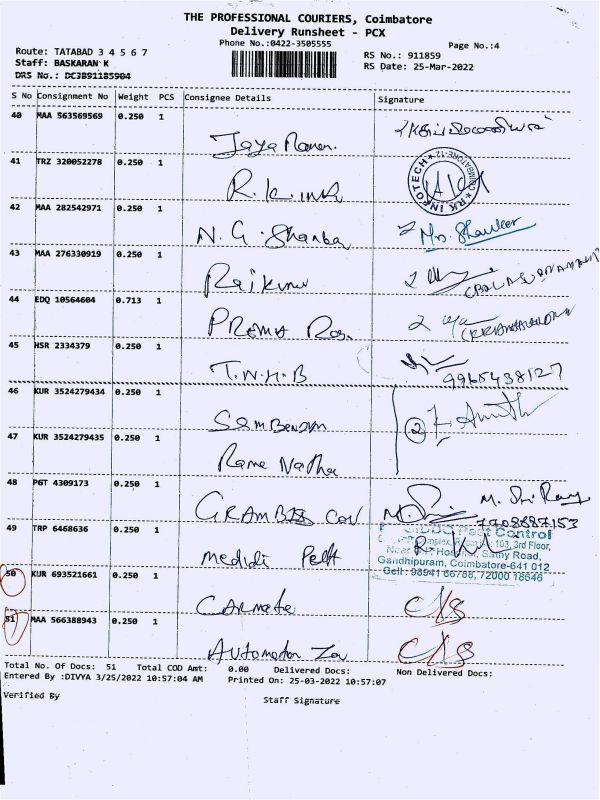 THE PROFESSIONAL COURIERS, Coimbatore
Delivery Runsheet - PCX
Phone No.:0422-3505555
Page No.:4
Route: TATABAD 3 4 5 6 7
RS No.: 911859
Staff: BASKARAN K
RS Date: 25-Mar-2022
DRS No.: DC3B91185904
S No Consignment No Weight PCS Consignee Details Signature
40 MAA 563569569 0.250 1
Jaya Raman.
41 TRZ 320052278 0.250 1
R.K. INFOTECH * COIMBATORE-12 *
42 MAA 282542971 0.250 1
N. G. Shanba Mrs. Shankar
43 MAA 276330919 0.250 1
Raikumar
44 EDQ 10564604 0.713 1
PREMA Raj.
45 HSR 2334379 0.250 1
T.N.H.B 9965438127
46 KUR 3524279434 0.250 1
Sambandam
47 KUR 3524279435 0.250 1
Rama Natha
48 PGT 4309173 0.250 1
GRAMBIS COV M. Sri Ram
7708887153
49 TRP 6468636 0.250 1
medidi Pest
Pest Control
103, 3rd Floor,
Sathy Road,
Gandhipuram, Coimbatore-641 012
Cell: 98941 66766, 72000 18646
50 KUR 693521661 0.250 1
CARMate C/S
51 MAA 566388943 0.250 1
Automation Zon C/S
Total No. Of Docs: 51 Total COD Amt: 0.00 Delivered Docs: Non Delivered Docs:
Entered By :DIVYA 3/25/2022 10:57:04 AM Printed On: 25-03-2022 10:57:07
Verified By Staff Signature